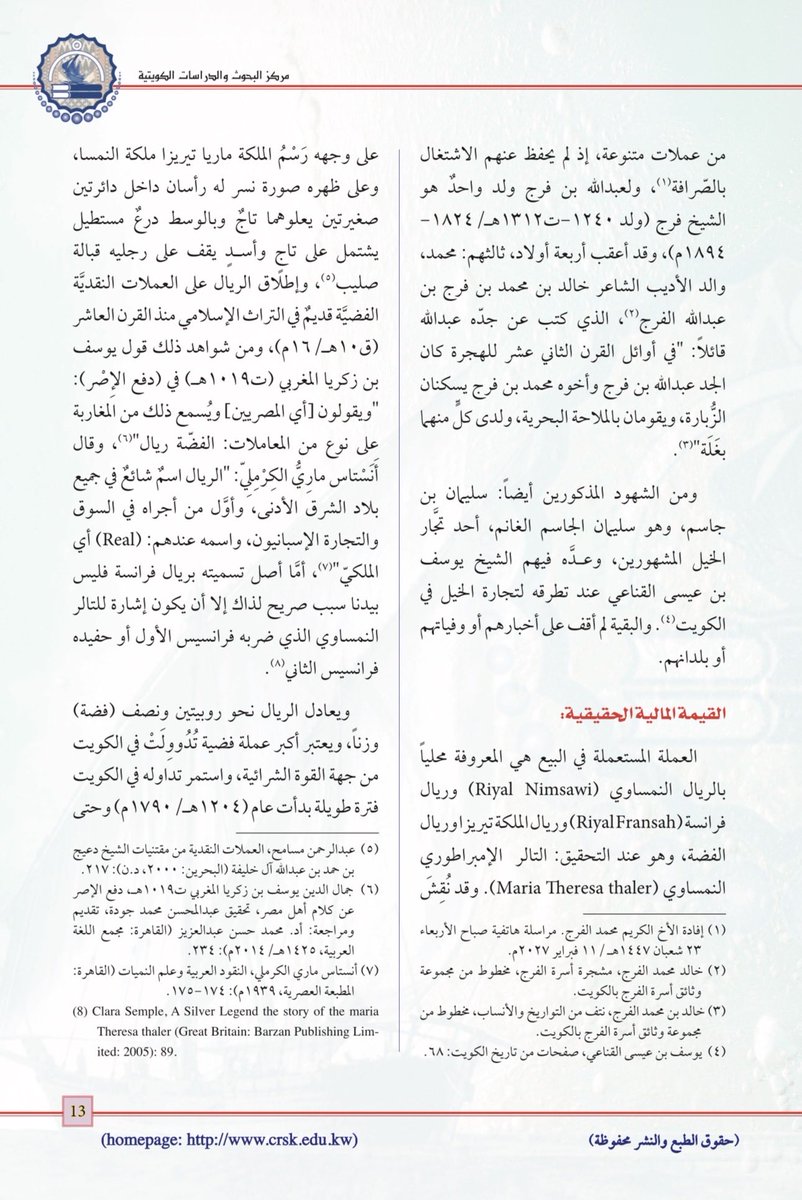 مركز البحوث والدراسات الكويتية
من عملات متنوعة، إذ لم يحفظ عنهم الاشتغال
بالصّرافة(١)، ولعبدالله بن فرج ولد واحدٌ هو
الشيخ فرج (ولد ١٢٤٠-ت١٣١٢هـ/ ١٨٢٤-
١٨٩٤م)، وقد أعقب أربعة أولاد، ثالثهم: محمد،
والد الأديب الشاعر خالد بن محمد بن فرج بن
عبدالله الفرج(٢)، الذي كتب عن جدّه عبدالله
قائلاً: "في أوائل القرن الثاني عشر للهجرة كان
الجد عبدالله بن فرج وأخوه محمد بن فرج يسكنان
الزُّبارة، ويقومان بالملاحة البحرية، ولدى كلٍّ منهما
بغَلَة"(٣).
ومن الشهود المذكورين أيضاً: سليمان بن
جاسم، وهو سليمان الجاسم الغانم، أحد تجَّار
الخيل المشهورين، وعدَّه فيهم الشيخ يوسف
بن عيسى القناعي عند تطرقه لتجارة الخيل في
الكويت(٤). والبقية لم أقف على أخبارهم أو وفياتهم
أو بلدانهم.
القيمة المالية الحقيقية:
العملة المستعملة في البيع هي المعروفة محلياً
بالريال النمساوي (Riyal Nimsawi) وريال
فرانسة (Riyal Fransah) وريال الملكة تيريزا وريال
الفضة، وهو عند التحقيق: التالر الإمبراطوري
النمساوي (Maria Theresa thaler). وقد نُقِشَ
(١) إفادة الأخ الكريم محمد الفرج. مراسلة هاتفية صباح الأربعاء
٢٣ شعبان ١٤٤٧هـ/ ١١ فبراير ٢٠٢٧م.
(٢) خالد محمد الفرج، مشجرة أسرة الفرج، مخطوط من مجموعة
وثائق أسرة الفرج بالكويت.
(٣) خالد بن محمد الفرج، نتف من التواريخ والأنساب، مخطوط من
مجموعة وثائق أسرة الفرج بالكويت.
(٤) يوسف بن عيسى القناعي، صفحات من تاريخ الكويت: ٦٨.
على وجهه رَسْمُ الملكة ماريا تيريزا ملكة النمسا،
وعلى ظهره صورة نسر له رأسان داخل دائرتين
صغيرتين يعلوهما تاجٌ وبالوسط درعٌ مستطيل
يشتمل على تاج وأسدٍ يقف على رجليه قبالة
صليب(٥)، وإطلاق الريال على العملات النقديَّة
الفضيَّة قديمٌ في التراث الإسلامي منذ القرن العاشر
(ق١٠هـ/ ١٦م)، ومن شواهد ذلك قول يوسف
بن زكريا المغربي (ت١٠١٩هـ) في (دفع الإصْر):
"ويقولون [أي المصريين] ويُسمع ذلك من المغاربة
على نوع من المعاملات: الفضّة ريال"(٦)، وقال
أَنَسْتاس ماريُّ الكِرْمليّ: "الريال اسمٌ شائعٌ في جميع
بلاد الشرق الأدنى، وأوَّل من أجراه في السوق
والتجارة الإسبانيون، واسمه عندهم: (Real) أي
الملكيّ"(٧)، أمَّا أصل تسميته بريال فرانسة فليس
بيدنا سبب صريح لذاك إلا أن يكون إشارة للتالر
النمساوي الذي ضربه فرانسيس الأول أو حفيده
فرانسيس الثاني(٨).
ويعادل الريال نحو روبيتين ونصف (فضة)
وزناً، ويعتبر أكبر عملة فضية تُدُووِلَتْ في الكويت
من جهة القوة الشرائية، واستمر تداوله في الكويت
فترة طويلة بدأت عام (١٢٠٤هـ/ ١٧٩٠م) وحتى
(٥) عبدالرحمن مسامح، العملات النقدية من مقتنيات الشيخ دعيج
بن حمد بن عبدالله آل خليفة (البحرين: ٢٠٠٠، د.ن): ٢١٧.
(٦) جمال الدين يوسف بن زكريا المغربي ت١٠١٩هـ، دفع الإصر
عن كلام أهل مصر، تحقيق عبدالمحسن محمد جودة، تقديم
ومراجعة: أد. محمد حسن عبدالعزيز (القاهرة: مجمع اللغة
العربية، ١٤٢٥هـ/ ٢٠١٤م): ٢٣٤.
(٧) أنستاس ماري الكرملي، النقود العربية وعلم النميات (القاهرة:
المطبعة العصرية، ١٩٣٩م): ١٧٤-١٧٥.
(8) Clara Semple, A Silver Legend the story of the maria
Theresa thaler (Great Britain: Barzan Publishing Lim-
ited: 2005): 89.
13
(حقوق الطبع والنشر محفوظة)
(homepage: http://www.crsk.edu.kw)